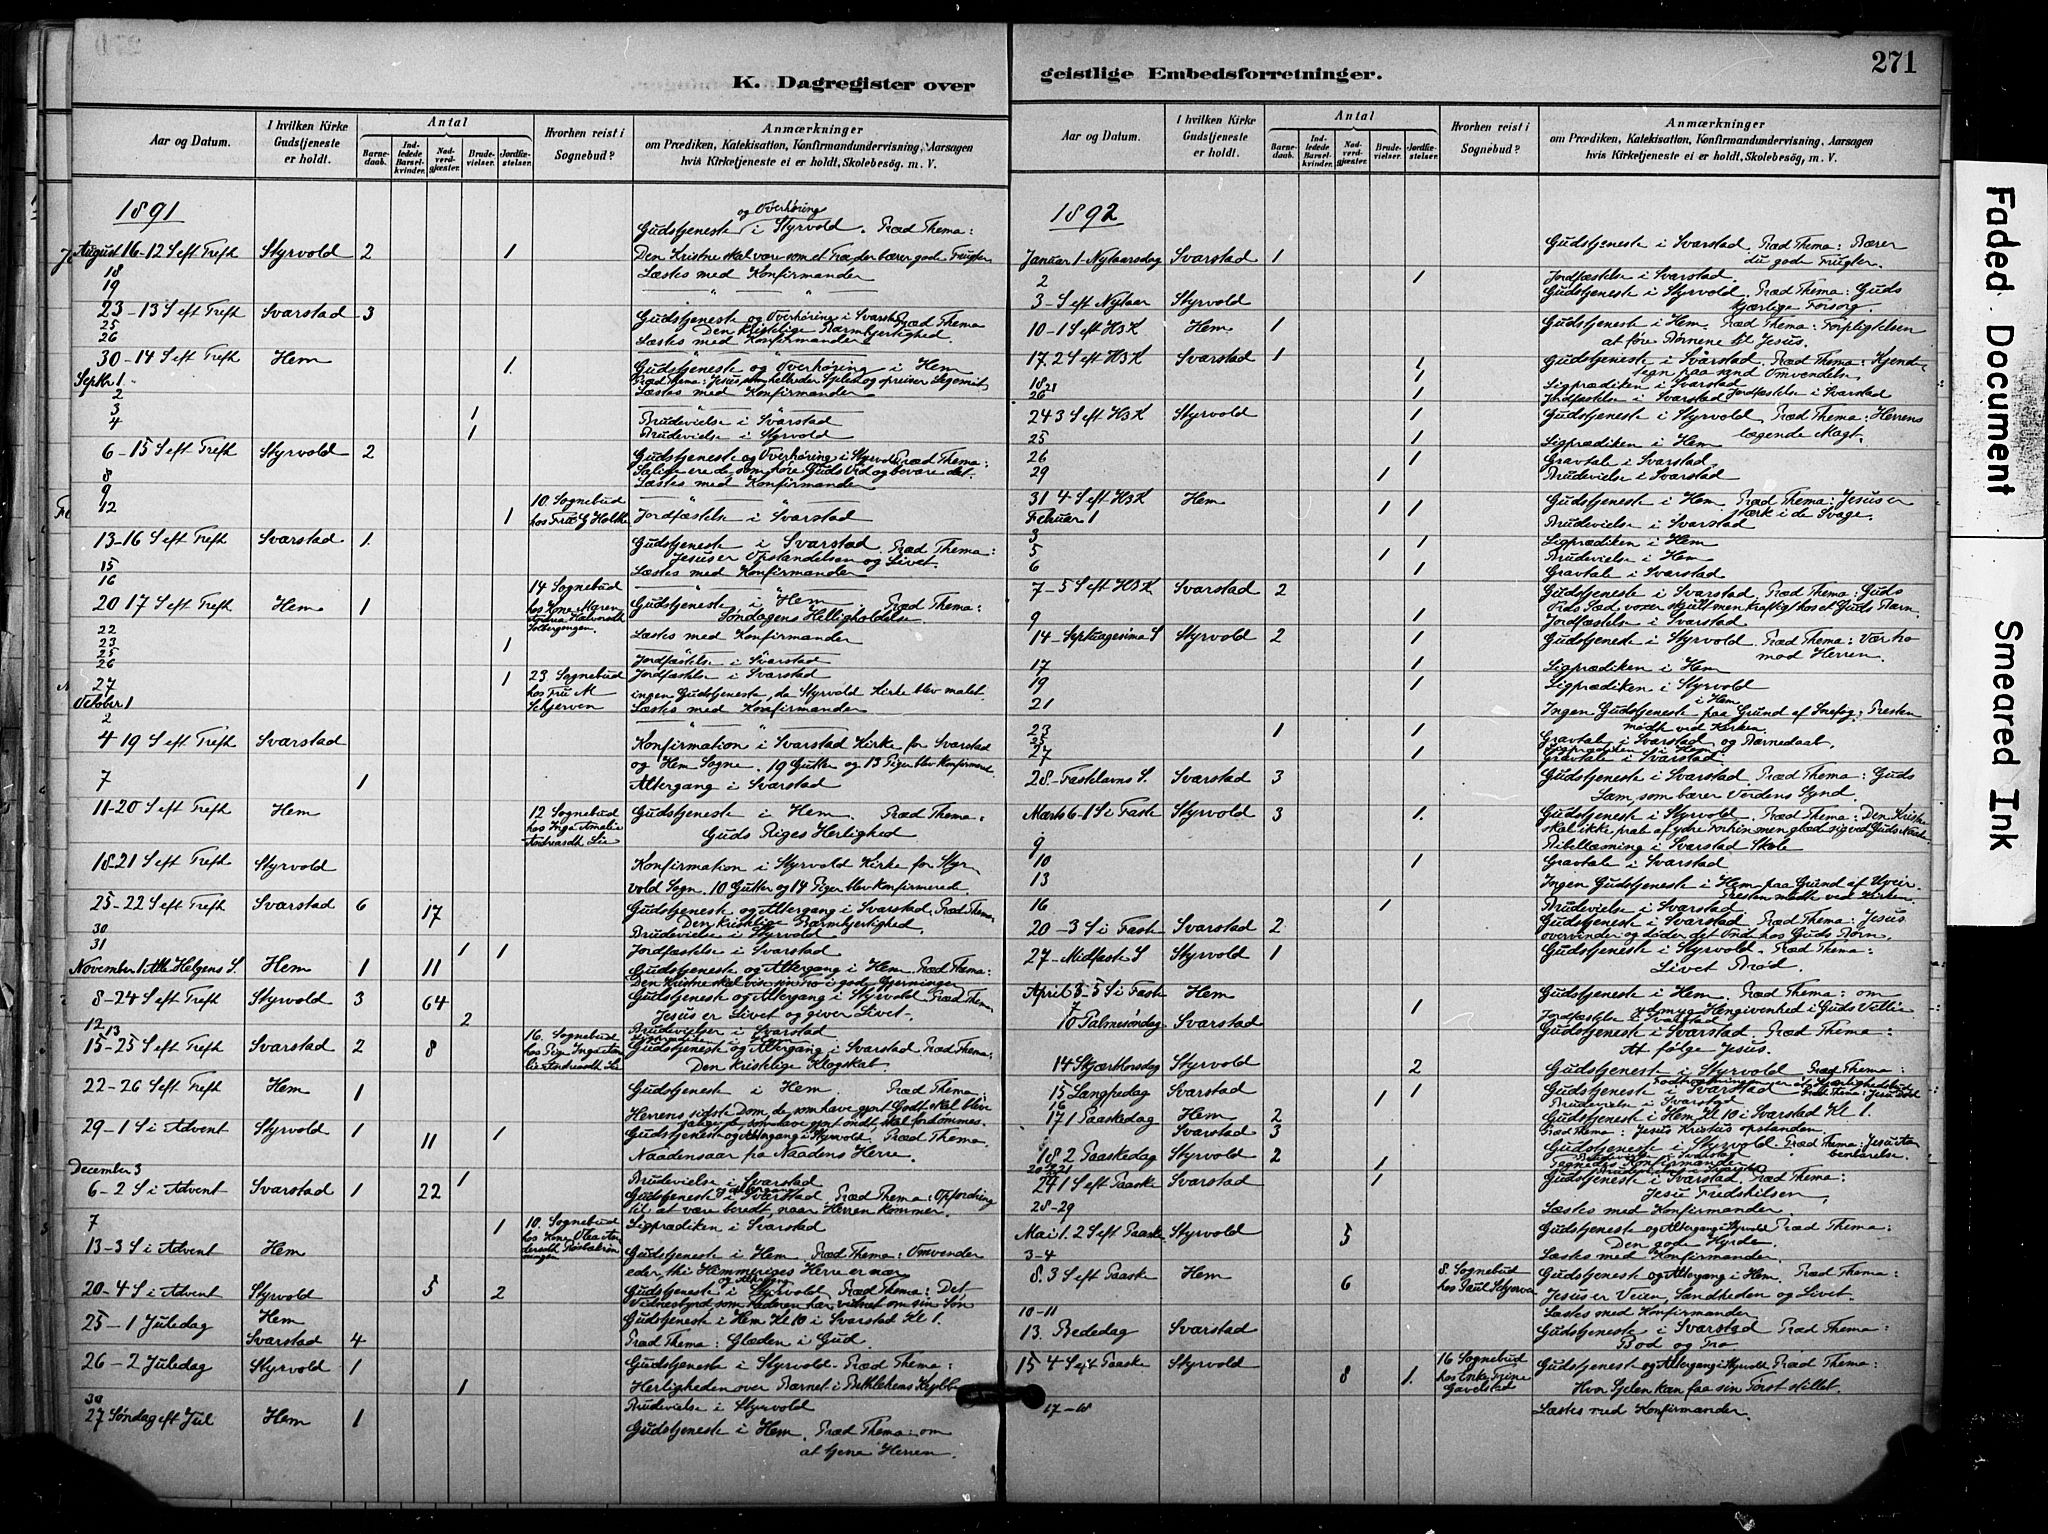 271
K. Dagregister over
geistlige Embedsforretninger.
Aar og Datum.
I hvilken Kirke Gudstjeneste er holdt.
Antal
Barnedaab.
Indledede Barselkvinder.
Nadverdgjæster.
Brudevielser.
Jordfæstelser.
Hvorhen reist i Sognebud?
Anmærkninger
om Prædiken, Katekisation, Konfirmandundervisning, Aarsagen
hvis Kirketjeneste ei er holdt, Skolebesög, m. V.
1891
og Overhøring
Gudstjeneste i Styrvold. Præd Thema:
August 16-12 S eft Trefh Styrvold 2 1 Den Kristne skal være som et Træ der bærer gode Frugter
18 Læstes med Konfirmander
19
23-13 S eft Trefh Svarstad 3 Gudstjeneste og Overhøring i Svarstad Præd Thema
25 Den kristelige Barmhjertighed.
26 Læstes med Konfirmander
30-14 S eft Trefh Hem 1 Gudstjeneste og Overhøring i Hem
Septbr 1
2 Læstes med Konfirmander
3 1 Brudevielse i Svarstad
4 1 Brudevielse i Styrvold
6-15 S eft Trefh Styrvold 2 Gudstjeneste og Overhøring i Styrvold Præd Thema:
Salige ere de, som høre Guds Ord og bevare det.
8 Læstes med Konfirmander
9
12 10 Sognebud
hos Fru G Holtke 1 Jordfæstelse i Svarstad
13-16 S eft Trefh Svarstad 1 Gudstjeneste i Svarstad Præd Thema:
Jesus er Opstandelsen og Livet.
15 Læstes med Konfirmander
16
14 Sognebud
20 17 S eft Trefh Hem 1 hos Kone Maren Gudstjeneste i Hem Præd Thema:
Søndagens Helligholdelse
22 Læstes med Konfirmander
23 1
25 Jordfæstelse i Svarstad
26
27 1 23 Sognebud Jordfæstelse i Svarstad
hos Fru M ingen Gudstjeneste, da Styrvold Kirke blev malet.
October 1 Schjerven Læstes med Konfirmander
2
4 19 S eft Trefh Svarstad Konfirmation i Svarstad Kirke for Svarstad
og Hem Sogne. 19 Gutter og 13 Piger blev Konfirmend.
7 1 Altergang i Svarstad
11-20 S eft Trefh Hem 12 Sognebud Gudstjeneste i Hem Præd Thema:
hos Inga Amalie Guds Riges Herlighed
Andreasdt Lie
18-21 S eft Trefh Styrvold Konfirmation i Styrvold Kirke for Styr
vold Sogn. 10 Gutter og 14 Piger blev Konfirmerede
25-22 S eft Trefh Svarstad 6 17 Gudstjeneste og Altergang i Svarstad. Præd Thema:
Den kristelige Barmhjertighed.
30 Brudevielse i Styrvold
31 1 1 Jordfæstelse i Svarstad
November 1 Alle Helgens S. Hem 1 11 Gudstjeneste og Altergang i Hem. Præd Thema:
Den Kristne skal vise sin Tro i gode Gjerninger
8-24 S eft Trefh Styrvold 3 64 Gudstjeneste og Altergang i Styrvold Præd Thema
Jesus er Livet og giver Livet.
12 13 2 Brudevielser i Svarstad
15-25 S eft Trefh Svarstad 2 8 16. Sognebud Gudstjeneste og Altergang i Svarstad Præd Thema:
hos Pige Inga Ama
lie Andreasdt Lie Den kristelige Klogskab
22-26 S eft Trefh Hem 1 Gudstjeneste i Hem Præd Thema:
Herrens sidste Dom, de som have gjort Godt skal blive
salige, de, som have gjort ondt, skal fordømmes.
29-1 S i Advent Styrvold 1 11 1 Gudstjeneste og Altergang i Styrvold. Præd Thema.
Naadensaar fra Naadens Herre.
December 3 1 Brudevielse i Svarstad
6-2 S i Advent Svarstad 1 22 Gudstjeneste og Altergang i Svarstad. Præd Thema: Opfordring
til at være beredt, naar Herren kommer.
7 1 10. Sognebud Ligprædiken i Svarstad
hos Kone Olea An
13-3 S i Advent Hem Gudstjeneste i Hem Præd Thema: Omvender
eder, thi Himmeriges Herre er nær
og Altergang
20-4 S i Advent Styrvold 5 2 Gudstjeneste i Styrvold. Præd Thema: Det
Vidnesbyrd som Faderen har vidnet om sin Søn
25-1 Juledag Hem Gudstjeneste i Hem Kl 10 i Svarstad Kl 1.
Svarstad 4 Præd Thema: Glæden i Gud.
26-2 Juledag Styrvold 1 Gudstjeneste i Styrvold. Præd Thema:
Herligheden over Barnet i Bethlehems Krybbe
30 1 Brudevielse i Styrvold
27 Søndag eft Jul Hem 1 Gudstjeneste i Hem. Præd Thema: om
at tjene Herren.
Aar og Datum.
I hvilken Kirke Gudstjeneste er holdt.
Antal
Barnedaab.
Indledede Barselkvinder.
Nadverdgjæster.
Brudevielser.
Jordfæstelser.
Hvorhen reist i Sognebud?
Anmærkninger
om Prædiken, Katekisation, Konfirmandundervisning, Aarsagen
hvis Kirketjeneste ei er holdt, Skolebesög, m. V.
1892
Januar 1-Nytaarsdag Svarstad 1 Gudstjeneste i Svarstad. Præd Thema: Bærer
du gode Frugter.
2 1 Jordfæstelse i Svarstad
3-S eft Nytaar Styrvold Gudstjeneste i Styrvold Præd Thema: Guds
kjærlige Forsorg.
10-1 S eft H3K Hem 1 Gudstjeneste i Hem. Præd Thema: Forpligtelsen
at føre Børnene til Jesus.
17. 2 S eft H3K Svarstad 1 1 Gudstjeneste i Svarstad Præd Thema: Kjende
tegn paa sand Omvendelse
18 21 1 Ligprædiken i Svarstad
26 1 Jordfæstelse i Svarstad Jordfæstelse i Svarstad
24 3 S eft H3K Styrvold 1 Gudstjeneste i Styrvold Præd Thema: Herrens
lægende Magt.
25 1 Ligprædiken i Hem
26 1 Gravtale i Svarstad
29 1 Brudevielse i Svarstad
31 4 S eft H3K Hem 1 1 Gudstjeneste i Hem Præd Thema: Jesus er
stærk i de Svage.
Februar 1 Brudevielse i Svarstad
3 1 Ligprædiken i Hem
5 1 Brudevielse i Hem
6 1 Gravtale i Svarstad
7-5 S eft H3K Svarstad 2 Gudstjeneste i Svarstad. Præd Thema: Guds
Ords Sæd voxer skjult men kraftig hos et Guds Barn.
9 1 Jordfæstelse i Svarstad
14-Septuagesima S Styrvold 2 1 Gudstjeneste i Styrvold Præd Thema: Vær tro
mod Herren.
17 1 Ligprædiken i Hem
19 1 Ligprædiken i Styrvold
i Hem
21 Ingen Gudstjeneste paa Grund af Snefog; Presten
mødte ved Kirken.
23 1 1 Gravtale i Svarstad og Barnedaab.
25 Ligprædiken i Hem
27 1 Gravtale i Svarstad.
28-Fastelavns S. Svarstad 3 Gudstjeneste i Svarstad Præd Thema: Guds
Lam, som bærer Verdens Synd.
Marts 6-1 S i Faste Styrvold 3 1. Gudstjeneste i Styrvold. Præd Thema: Den Kristne
9 Bibellæsning i Svarstad Skole
10 1 Gravtale i Svarstad
13 Ingen Gudstjeneste i Hem paa Grund af Uveir.
Presten mødte ved Kirken.
16 1 Brudevielse i Svarstad
20-3 S i Faste Svarstad 2 Gudstjeneste i Svarstad. Præd Thema: Jesus
overvinder og døder det Onde hos Guds Børn.
27-Midfaste S Styrvold 1 Gudstjeneste i Styrvold. Præd Thema:
Livet Brød.
April 3-5 S i Faste Hem Gudstjeneste i Hem Præd Thema: om
ydmyg Hengivenhed i Guds Villie
7 1 Jordfæstelse i Svarstad
10 Palmesøndag Svarstad Gudstjeneste i Svarstad. Præd Thema:
At følge Jesus.
14 Skjærthorsdag Styrvold 2 Gudstjeneste i Styrvold Præd Thema:
15 Langfredag Svarstad 1 1 Gudstjeneste i Svarstad
16 Brudevielse i Svarstad
17 1 Paaskedag Hem 2 Gudstjeneste i Hem Kl 10 i Svarstad Kl 1.
Svarstad 3 Præd Thema: Jesus Kristus opstanden.
18 2 Paaskedag Styrvold 2 Gudstjeneste i Styrvold. Præd Thema: Jesu Aa
benbarelse.
20 21 1 Brudevielse i Svarstad
24 1 S eft Paaske Svarstad 1 Gudstjeneste i Svarstad. Præd Thema:
Jesu Fredshilsen
28-29 Læstes med Konfirmander.
Mai 1. 2 S eft Paaske Styrvold 5 Gudstjeneste og Altergang i Styrvold Præd Thema:
Den gode Hyrde.
3-4 Læstes med Konfirmander
8. 3 S eft Paaske Hem 6 8. Sognebud Gudstjeneste og Altergang i Hem. Præd Thema:
hos Paul Schjerven Jesus er Veien, Sandheden og Livet.
10-11 Læstes med Konfirmander
13. Bededag Svarstad Gudstjeneste i Svarstad Præd Thema:
Bod og Tro
15 4 S eft Paaske Styrvold 8 1. 16 Sognebud Gudstjeneste og Altergang i Styrvold Præd Thema:
hos Enke Trine
Gavelstad Hvor Sjelen kan faa sin Tørst stillet.
17-18 Læstes med Konfirmander.
Faded Document
Smeared Ink